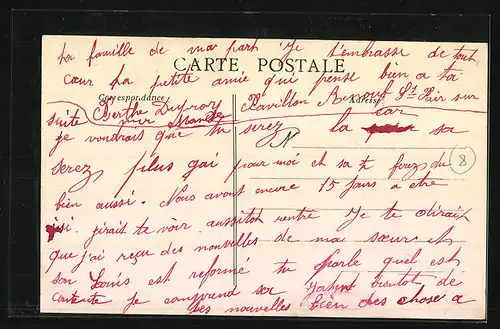 ta famille de ma part Je t'embrasse de tout
CARTE POSTALE
cœur ta petite amie qui pense bien a toi
Correspondance
Adresse
suite Berthe Dufroy Pavillon St Pair sur
mer Manche
je voudrais que tu serez la car sa
serez plus gai pour moi et sa te
bien aussi. Nous avont encore 15 jours a etre
isi. jirait te voir aussitot rentré Je te dirait
que j'ai reçu des nouvelles de ma sœur et
son Louis est reformé tu parle quel est
contente Je comprend sa bientot de
tes nouvelles bien des chose a
N
8